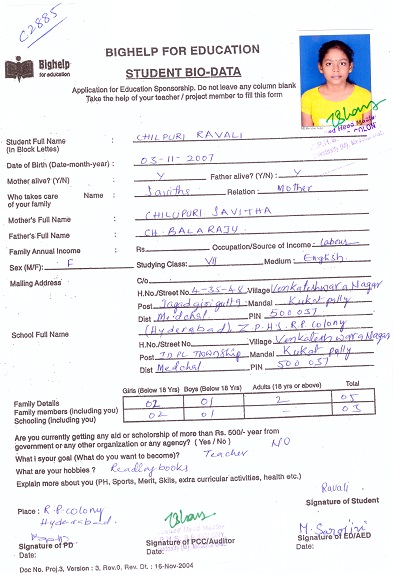 C2885
Bighelp
for education
BIGHELP FOR EDUCATION
STUDENT BIO-DATA
Application for Education Sponsorship. Do not leave any column blank
Take the help of your teacher / project member to fill this form
Student Full Name : CHILPURI RAVALI
(in Block Letters)
Date of Birth (Date-month-year) : 03-11-2007
Mother alive? (Y/N) : Y Father alive? (Y/N) : Y
Who takes care Name : Savitha Relation : Mother
of your family
Mother's Full Name : CHILUPURI SAVITHA
Father's Full Name : CH. BALARAJU
Family Annual Income : Rs. Occupation/Source of Income : Labour
Sex (M/F) : F Studying Class : VII Medium : English
Mailing Address C/o
H.No./Street No. 4-35-48 Village Venkateshwara Nagar
Post Jagadgirigutta Mandal Kukat pally
Dist Medchal PIN 500037
School Full Name : (Hyderabad) Z.P.H.S. R.P colony
H.No./Street No. Village Venkateshwara Nagar
Post IDPL TOWNSHIP Mandal Kukat pally
Dist Medchal PIN 500 037
Girls (Below 18 Yrs) Boys (Below 18 Yrs) Adults (18 yrs or above) Total
Family Details
Family members (including you) : 02 01 2 05
Schooling (including you) : 02 01 - 03
Are you currently getting any aid or scholarship of more than Rs. 500/- year from
government or any other organization or any agency? (Yes / No) NO
What I syour goal (What do you want to become)? Teacher
What are your hobbies ? Reading books
Explain more about you (PH, Sports, Merit, Skils, extra curricular activities, health etc.)
Ravali
Signature of Student
Place : R.P colony
Hyderabad.
Signature of PD
Date:
Signature of PCC/Auditor
Date:
M. Sarojini
Signature of ED/AED
Date:
Doc No. Proj.3, Version : 3, Rev.0, Rev. Dt. : 16-Nov-2004